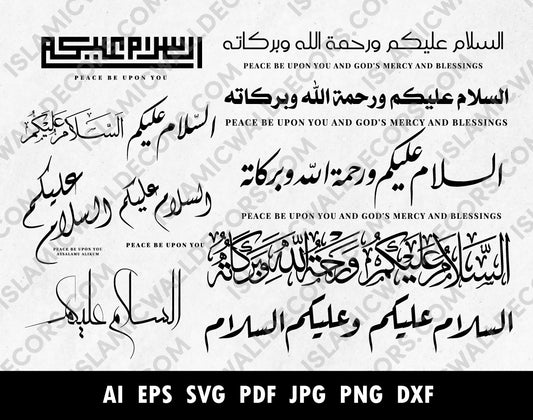 السلام عليكم
PEACE BE UPON YOU
السلام عليكم ورحمة الله وبركاته
PEACE BE UPON YOU AND GOD'S MERCY AND BLESSINGS
السلام عليكم ورحمة الله وبركاته
PEACE BE UPON YOU AND GOD'S MERCY AND BLESSINGS
السلام عليكم
السلام عليكم
السلام عليكم ورحمة الله وبركاته
PEACE BE UPON YOU AND GOD'S MERCY AND BLESSINGS
السلام عليكم
PEACE BE UPON YOU
ASSALAMU ALIKUM
السلام عليكم
PEACE BE UPON YOU
السَّلَامُ عَلَيْكُمْ وَرَحْمَةُ اللَّهِ وَبَرَكَاتُهُ
السلام عليكم
السلام عليكم وعليكم السلام
ISLAMICWALLDECORS.COM
AI EPS SVG PDF JPG PNG DXF